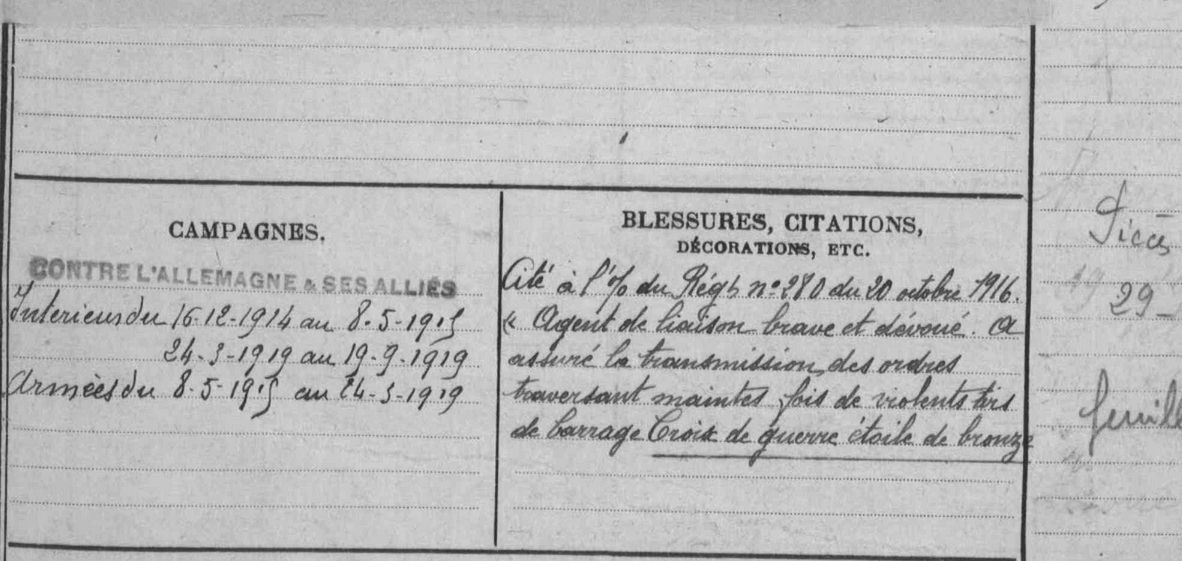 CAMPAGNES.
CONTRE L'ALLEMAGNE & SES ALLIÉS
Intérieur du 16-12-1914 au 8-5-1915
24-3-1919 au 19-9-1919
Armées du 8-5-1915 au 24-3-1919
BLESSURES, CITATIONS,
DÉCORATIONS, ETC.
Cité à l'o/ du Régt n° 280 du 20 octobre 1916.
« Agent de liaison brave et dévoué. A
assuré la transmission des ordres
traversant maintes fois de violents tirs
de barrage Croix de guerre étoile de bronze
Pièces
29-
feuille